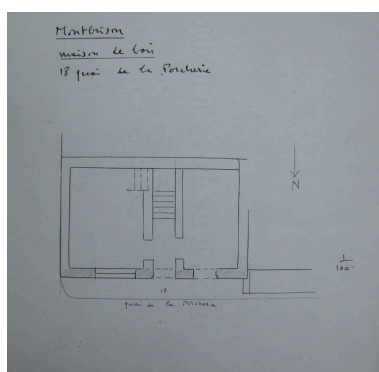 Montbrison
maison de bois
18 quai de la Porcherie
N
1/100
18
quai de la Porcherie